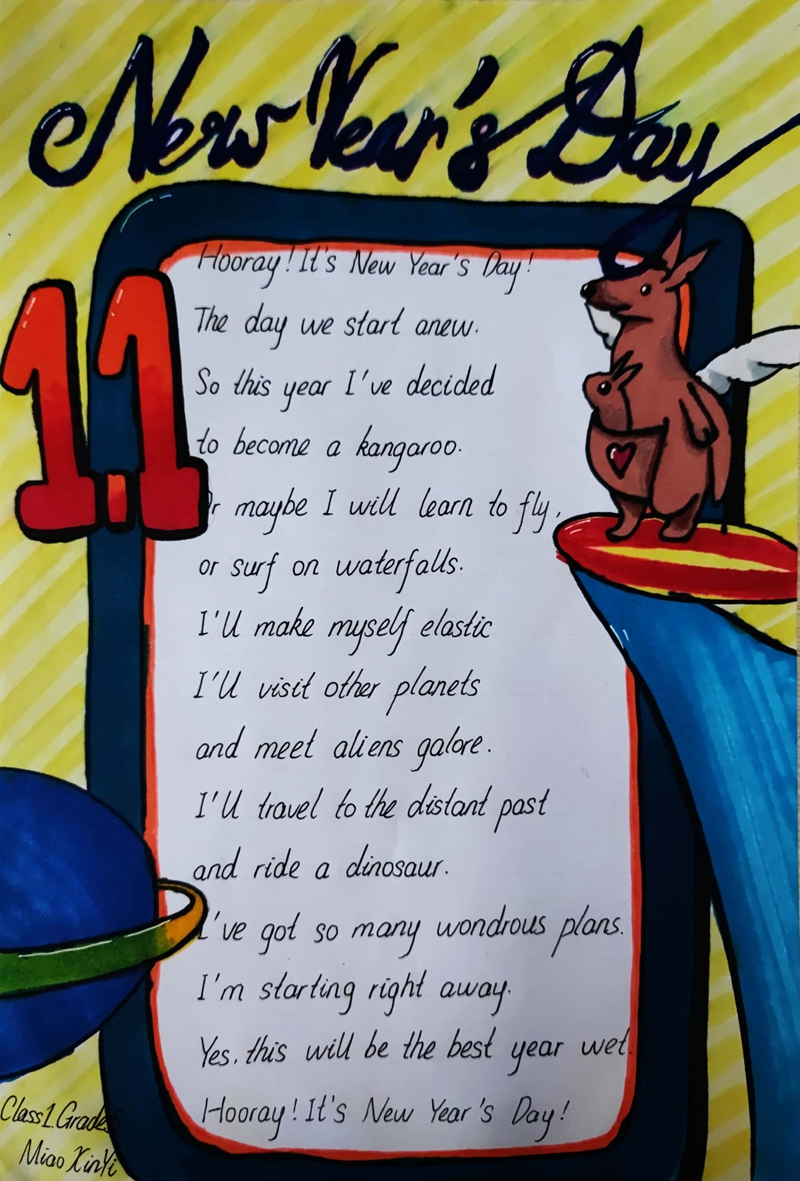 New Year's Day
1.1
Hooray! It's New Year's Day!
The day we start anew.
So this year I've decided
to become a kangaroo.
Or maybe I will learn to fly,
or surf on waterfalls.
I'll make myself elastic
I'll visit other planets
and meet aliens galore.
I'll travel to the distant past
and ride a dinosaur.
I've got so many wondrous plans.
I'm starting right away.
Yes, this will be the best year wet.
Hooray! It's New Year's Day!
Class1.Grade5
Miao XinYi